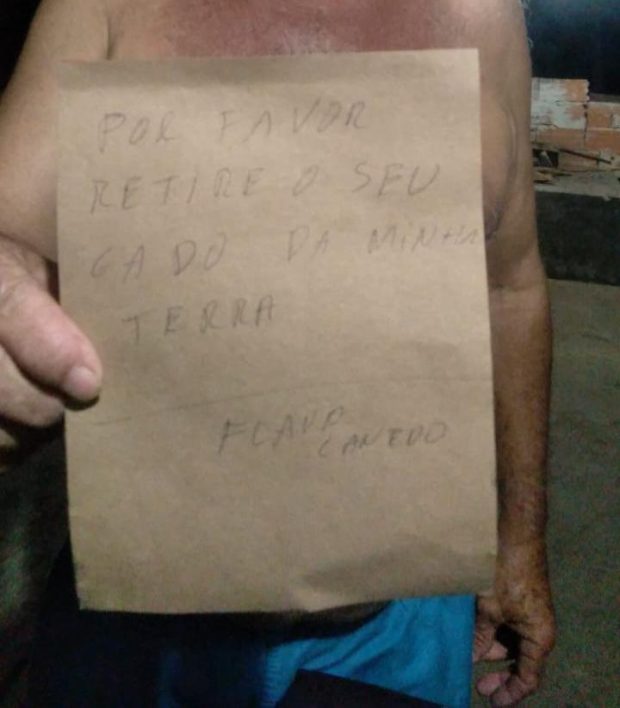 POR FAVOR
RETIRE O SEU
GADO DA MINHA
TERRA
FLAVO
CANEDO